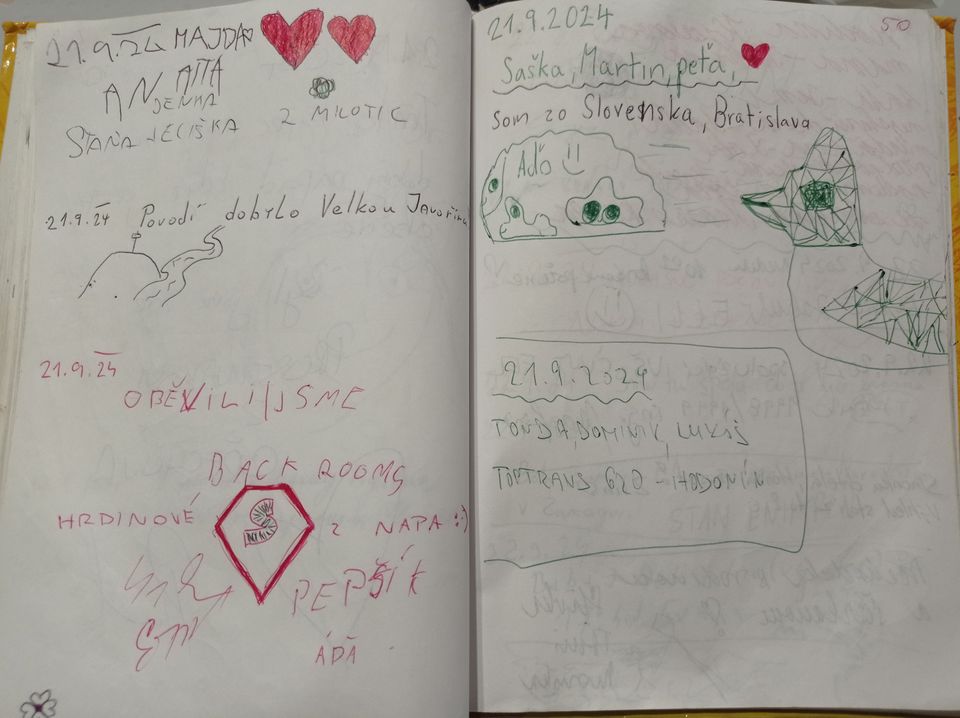 21.9.24 MAJDA
ANITA
JENKA
STAŇA JECIŠKA
Z MILOTIC
21.9.24 Povodí dobylo Velkou Javořinu
21.9.24
OBĚVILI JSME
BACK ROOMS
HRDINOVÉ
Z NAPA :)
PEPŠÍK
ÁĎA
21.9.2024
50
Saška, Martin, peťa,
Som zo Slovenska, Bratislava
Aďo
21.9.2024
TOŃDA, DOMINIK, LUKÁŠ
TOPTRANS 620 - HODONÍN